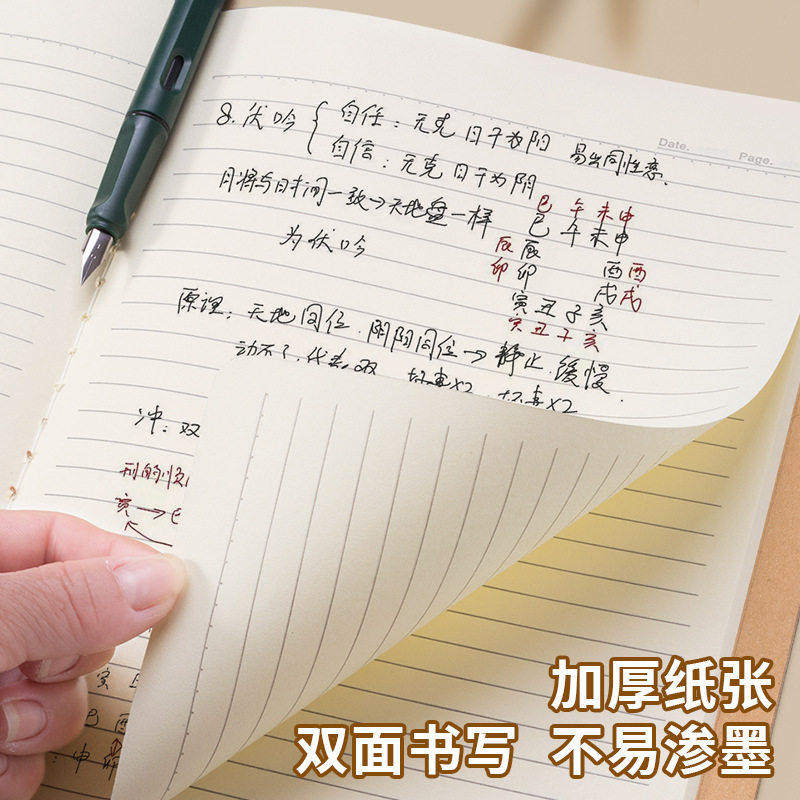 Date.
Page.
8. 伏吟 { 自任：无克 日干为阳 易出同性恋.
自信：无克 日干为阴
月将与时间一致→天地盘一样
为伏吟
巳 午 未 申
巳 午 未 申
辰 辰 酉 酉
卯 卯 戌 戌
寅 丑 子 亥
寅 丑 子 亥
原理：天地同位.阴阳同位→静止.缓慢.
动不了.代表双
冲：双
刑的
亥→
加厚纸张
双面书写 不易渗墨